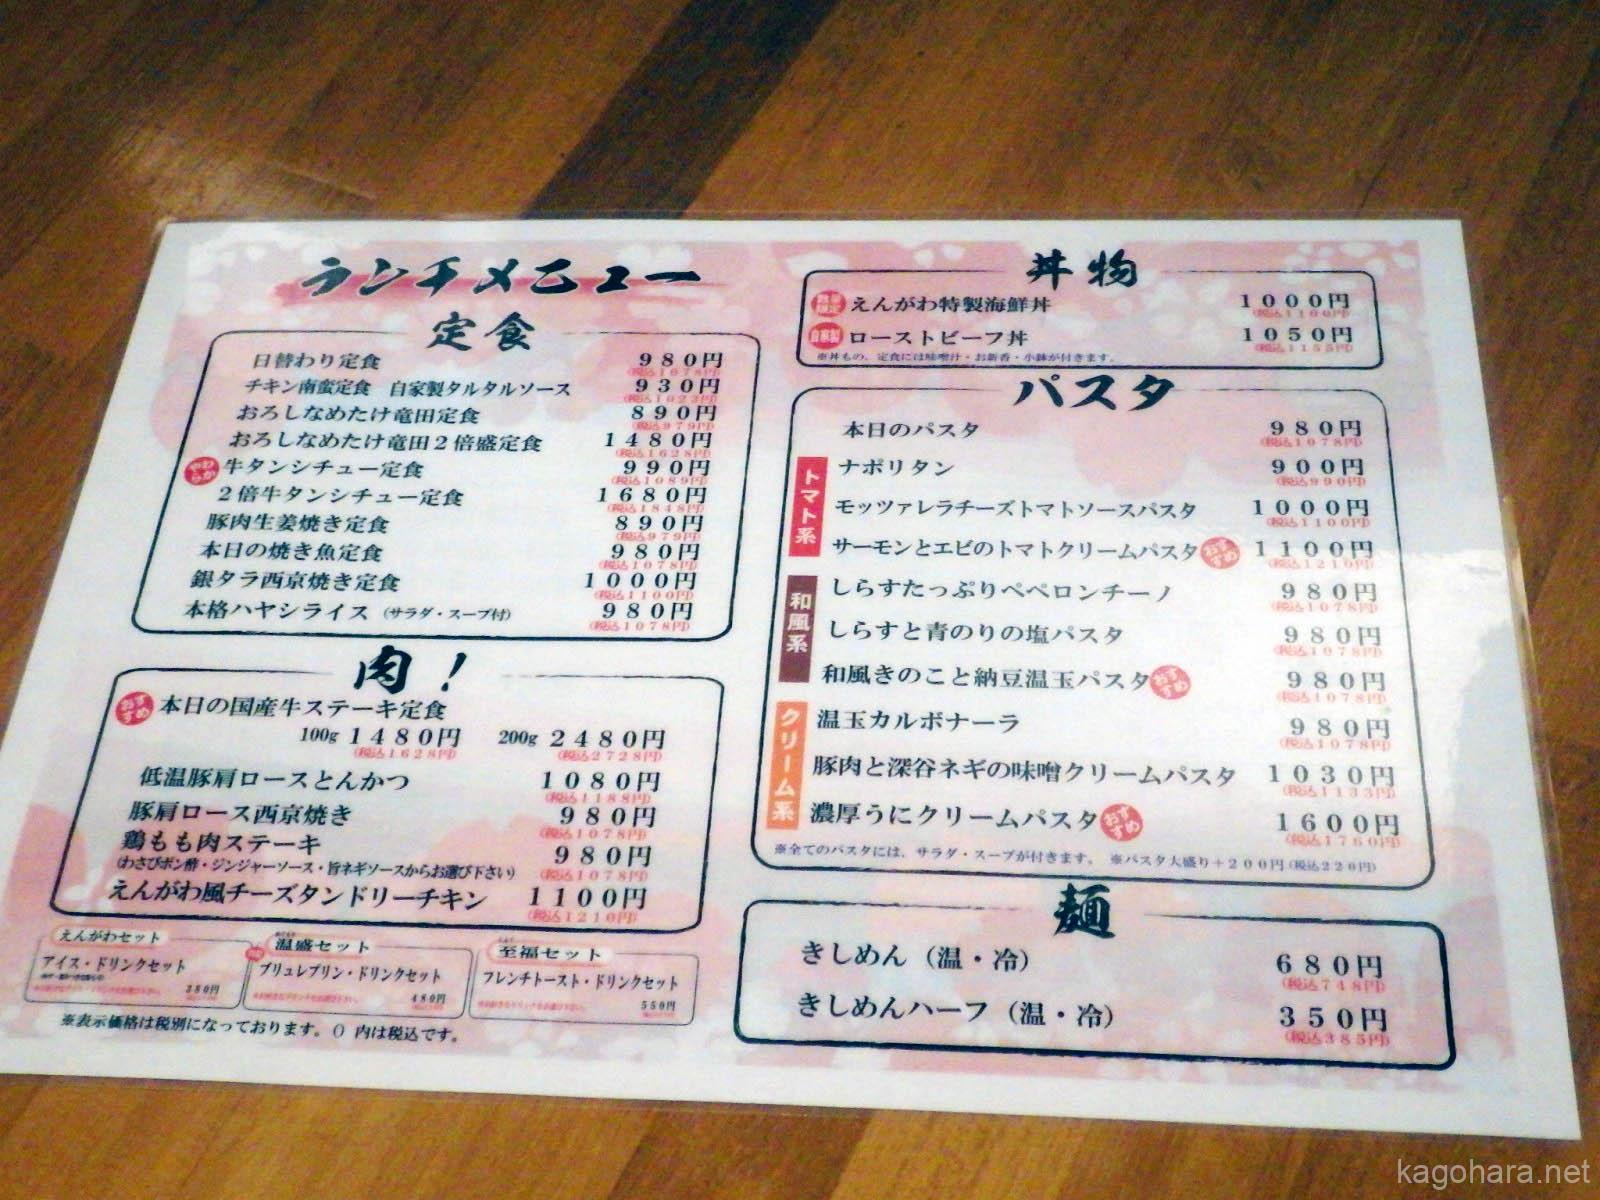 ランチメニュー
定食
日替わり定食 980円
(税込1078円)
チキン南蛮定食 自家製タルタルソース 930円
(税込1023円)
おろしなめたけ竜田定食 890円
(税込979円)
おろしなめたけ竜田2倍盛定食 1480円
(税込1628円)
やわらか 牛タンシチュー定食 990円
(税込1089円)
2倍牛タンシチュー定食 1680円
(税込1848円)
豚肉生姜焼き定食 890円
(税込979円)
本日の焼き魚定食 980円
(税込1078円)
銀タラ西京焼き定食 1000円
(税込1100円)
本格ハヤシライス (サラダ・スープ付) 980円
(税込1078円)
肉!
おすすめ 本日の国産牛ステーキ定食
100g 1480円 200g 2480円
(税込1628円) (税込2728円)
低温豚肩ロースとんかつ 1080円
(税込1188円)
豚肩ロース西京焼き 980円
(税込1078円)
鶏もも肉ステーキ 980円
(わさびポン酢・ジンジャーソース・旨ネギソースからお選び下さい) (税込1078円)
えんがわ風チーズタンドリーチキン 1100円
(税込1210円)
えんがわセット
アイス・ドリンクセット
380円
温盛セット
ブリュレプリン・ドリンクセット
480円
至福セット
フレンチトースト・ドリンクセット
550円
※表示価格は税別になっております。() 内は税込です。
丼物
数量限定 えんがわ特製海鮮丼 1000円
(税込1100円)
自家製 ローストビーフ丼 1050円
(税込1155円)
※丼もの、定食には味噌汁・お新香・小鉢が付きます。
パスタ
本日のパスタ 980円
(税込1078円)
トマト系
ナポリタン 900円
(税込990円)
モッツァレラチーズトマトソースパスタ 1000円
(税込1100円)
サーモンとエビのトマトクリームパスタ おすすめ 1100円
(税込1210円)
和風系
しらすたっぷりペペロンチーノ 980円
(税込1078円)
しらすと青のりの塩パスタ 980円
(税込1078円)
和風きのこと納豆温玉パスタ おすすめ 980円
(税込1078円)
クリーム系
温玉カルボナーラ 980円
(税込1078円)
豚肉と深谷ネギの味噌クリームパスタ 1030円
(税込1133円)
濃厚うにクリームパスタ おすすめ 1600円
(税込1760円)
※全てのパスタには、サラダ・スープが付きます。 ※パスタ大盛り+200円(税込220円)
麺
きしめん (温・冷) 680円
(税込748円)
きしめんハーフ (温・冷) 350円
(税込385円)
kagohara.net